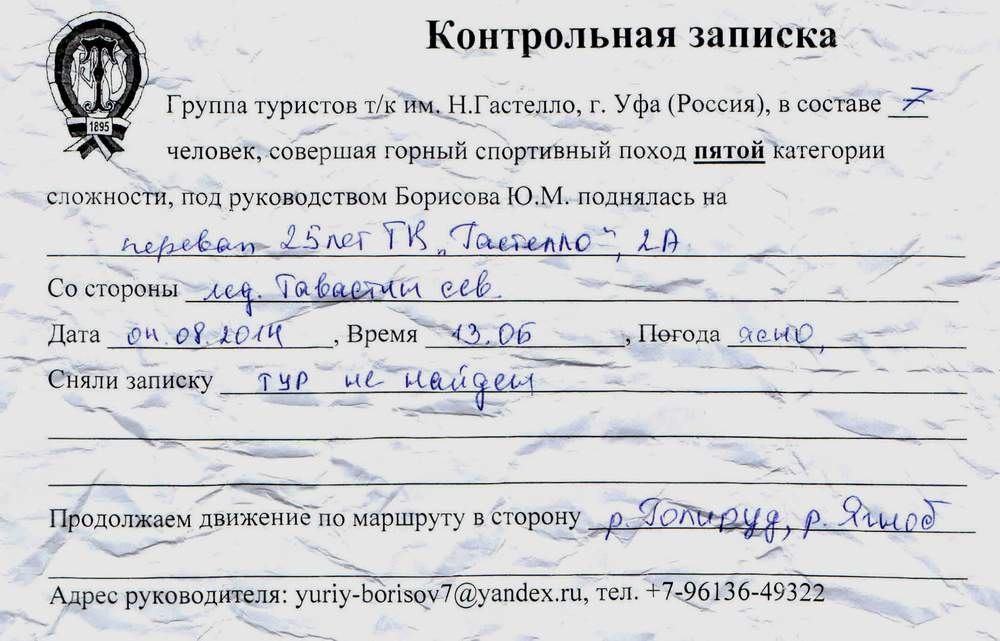 Контрольная записка
1895
Группа туристов т/к им. Н.Гастелло, г. Уфа (Россия), в составе 7
человек, совершая горный спортивный поход пятой категории
сложности, под руководством Борисова Ю.М. поднялась на
перевал 25 лет ТК „Гастелло“, 2А
Со стороны лед. Тавастин сев.
Дата 04.08.2014, Время 13.06, Погода ясно,
Сняли записку тур не найден
Продолжаем движение по маршруту в сторону р. Гопируд, р. Ягноб
Адрес руководителя: yuriy-borisov7@yandex.ru, тел. +7-96136-49322